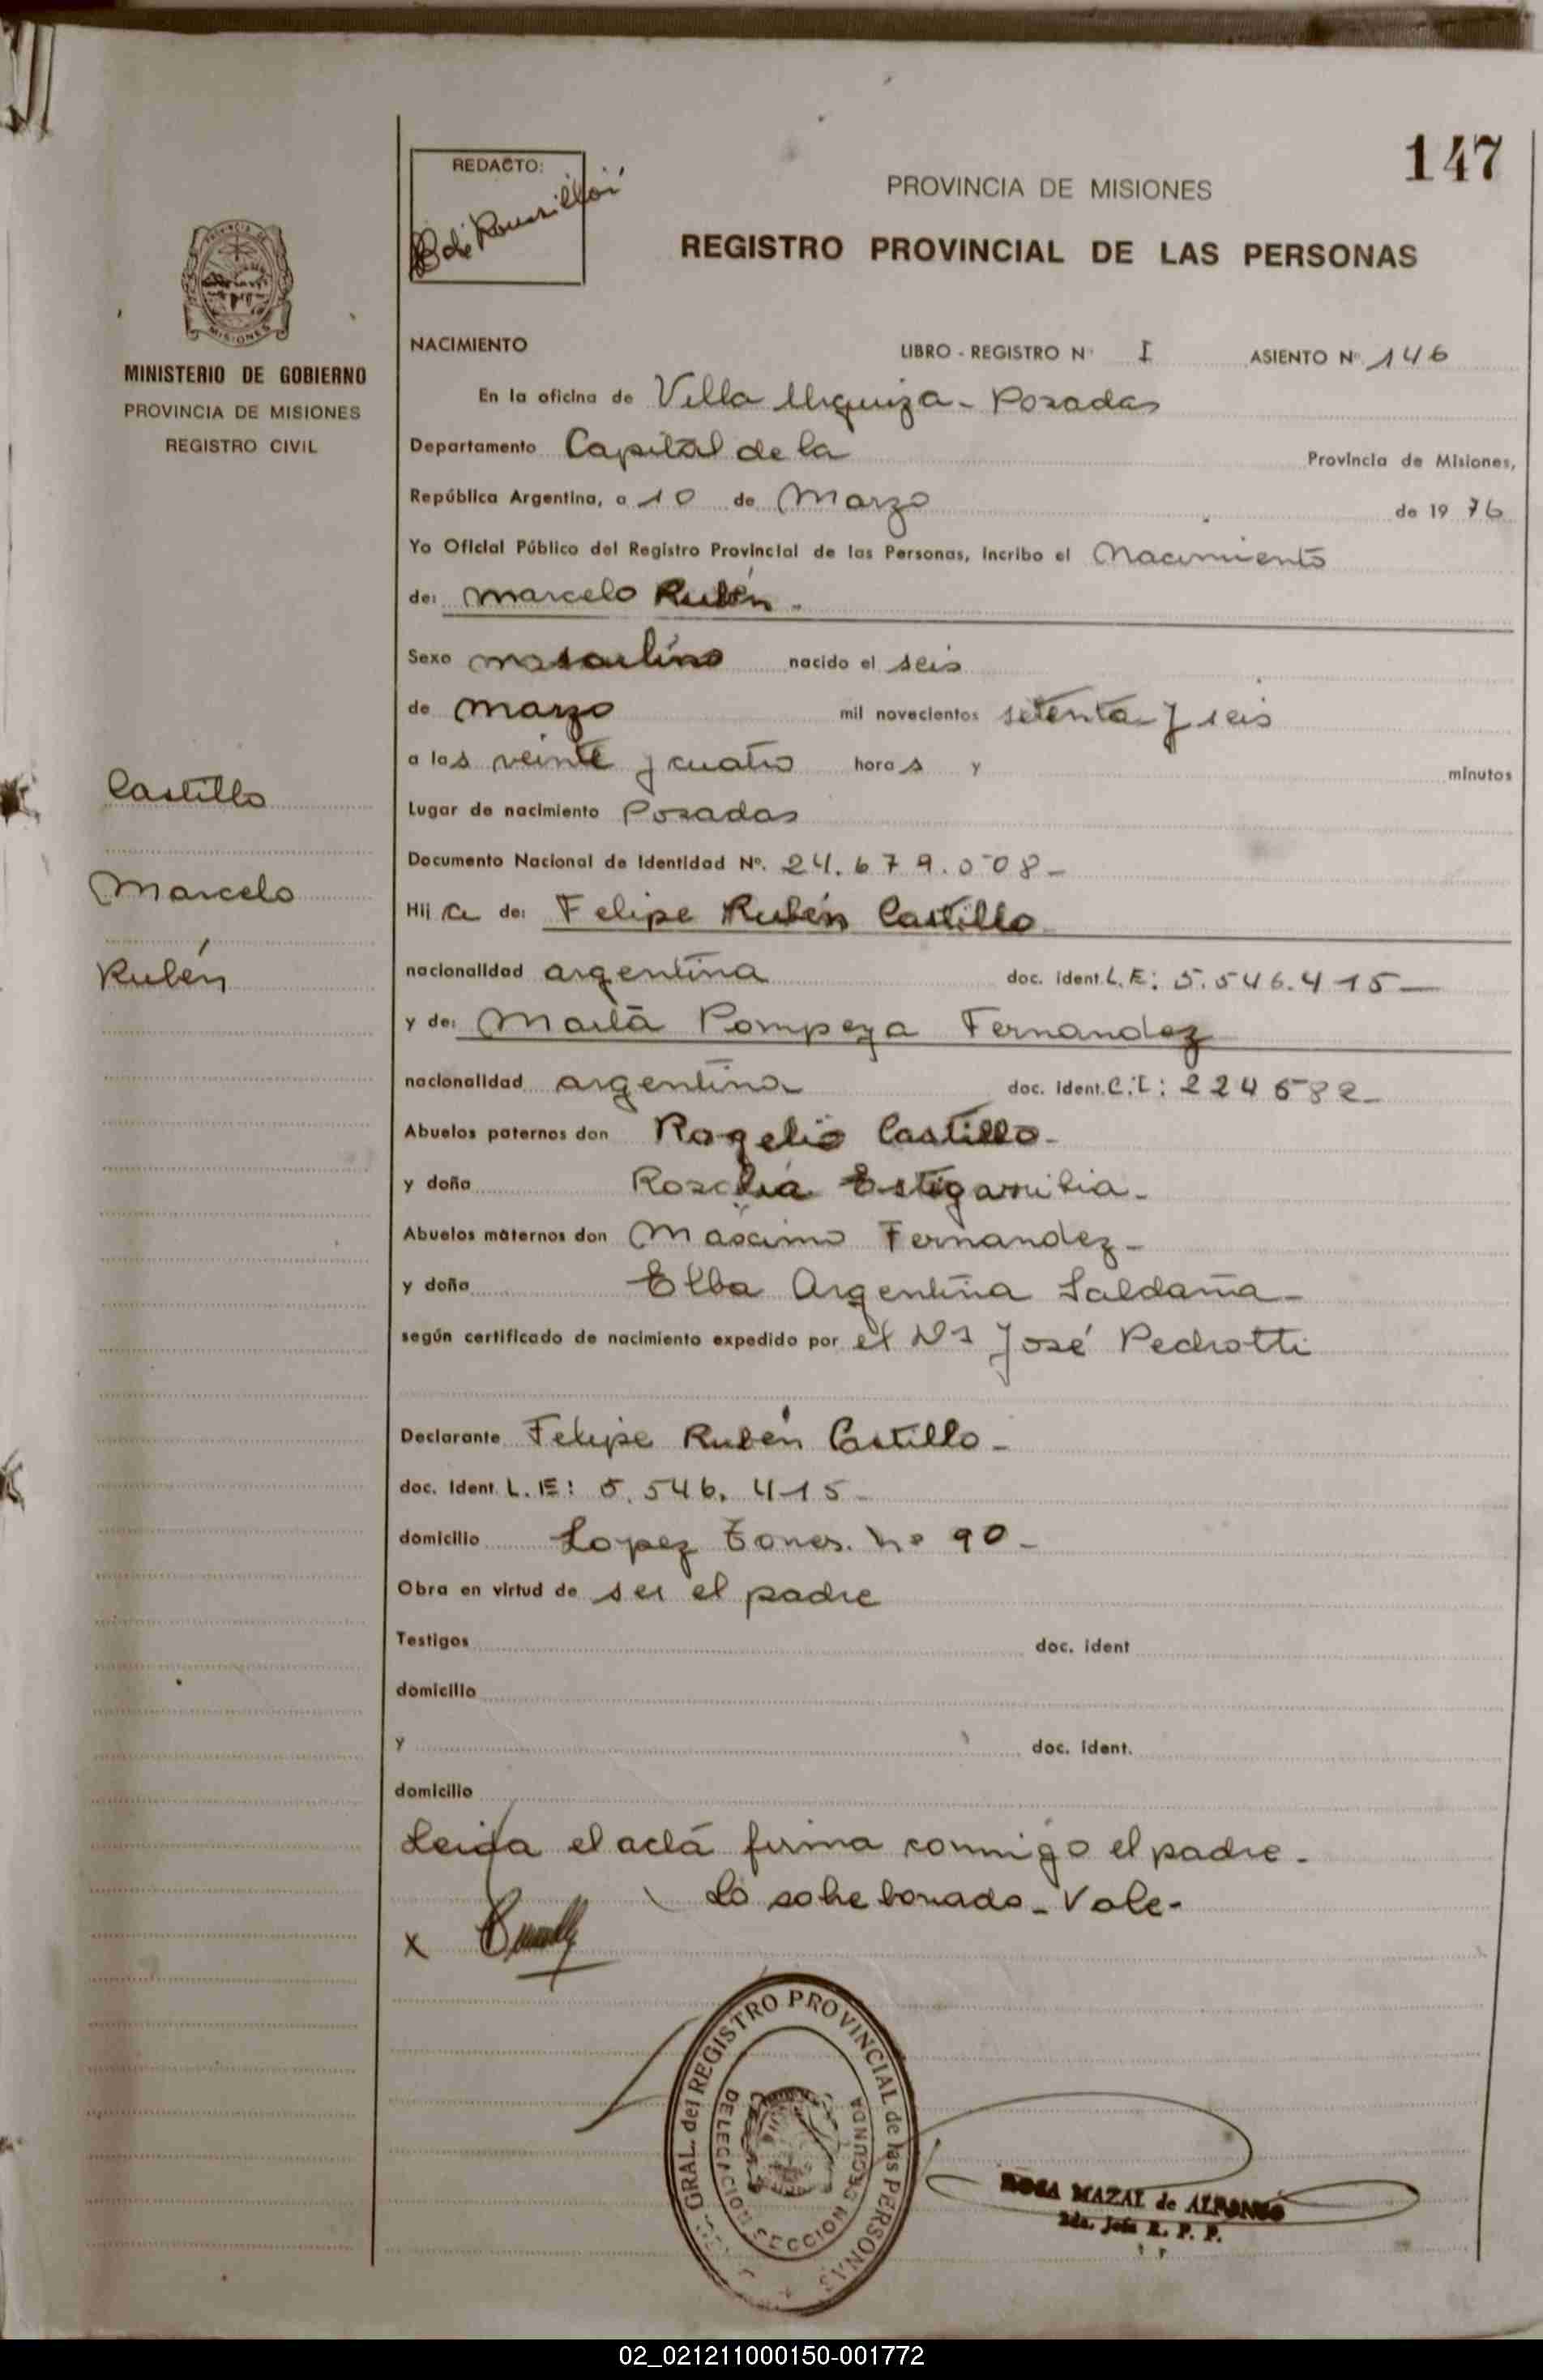 147
REDACTO:
PROVINCIA DE MISIONES
REGISTRO PROVINCIAL DE LAS PERSONAS
MISIONES
MINISTERIO DE GOBIERNO
PROVINCIA DE MISIONES
REGISTRO CIVIL
NACIMIENTO LIBRO - REGISTRO Nº I ASIENTO Nº 146
En la oficina de Villa Urquiza - Posadas
Departamento Capital de la Provincia de Misiones,
República Argentina, a 10 de Marzo de 1976
Yo Oficial Público del Registro Provincial de las Personas, incribo el Nacimiento
de: Marcelo Rubén -
Sexo masculino nacido el seis
de marzo mil novecientos setenta y seis
a las veinte y cuatro horas y minutos
Castillo
Lugar de nacimiento Posadas
Documento Nacional de Identidad Nº. 24.679.008-
Marcelo
Hij a de: Felipe Rubén Castillo
Rubén
nacionalidad argentina doc. ident. L.E: 5.546.415-
y de: Marta Pompeya Fernandez
nacionalidad argentina doc. ident. C.I: 224582-
Abuelos paternos don Rogelio Castillo-
y doña Rosalia Estigarribia-
Abuelos maternos don Maximo Fernandez-
y doña Elba Argentina Saldaña-
según certificado de nacimiento expedido por el Dr José Pedrotti
Declarante Felipe Rubén Castillo-
doc. ident. L.E: 5.546.415-
domicilio Lopez Torres. Nº 90-
Obra en virtud de ser el padre
Testigos doc. ident
domicilio
y doc. ident.
domicilio
Leida el acta firma conmigo el padre-
Lo sobre borrado - Vale-
x
GRAL. del REGISTRO PROVINCIAL de las PERSONAS
DELEGACION SECCION SEGUNDA
ROSA MAZAL de ALFONSO
2da. Jefa R. P. P.
02_021211000150-001772